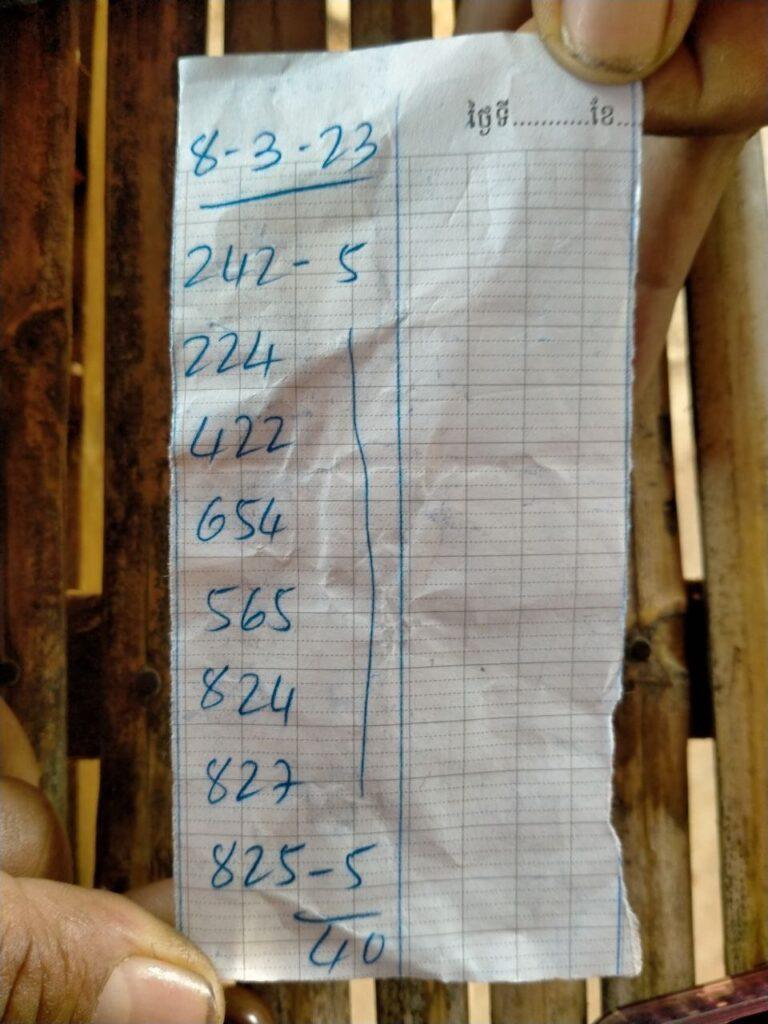 ថ្ងៃទី...........ខែ...
8-3-23
242-5
224
422
654
565
824
827
825-5
40